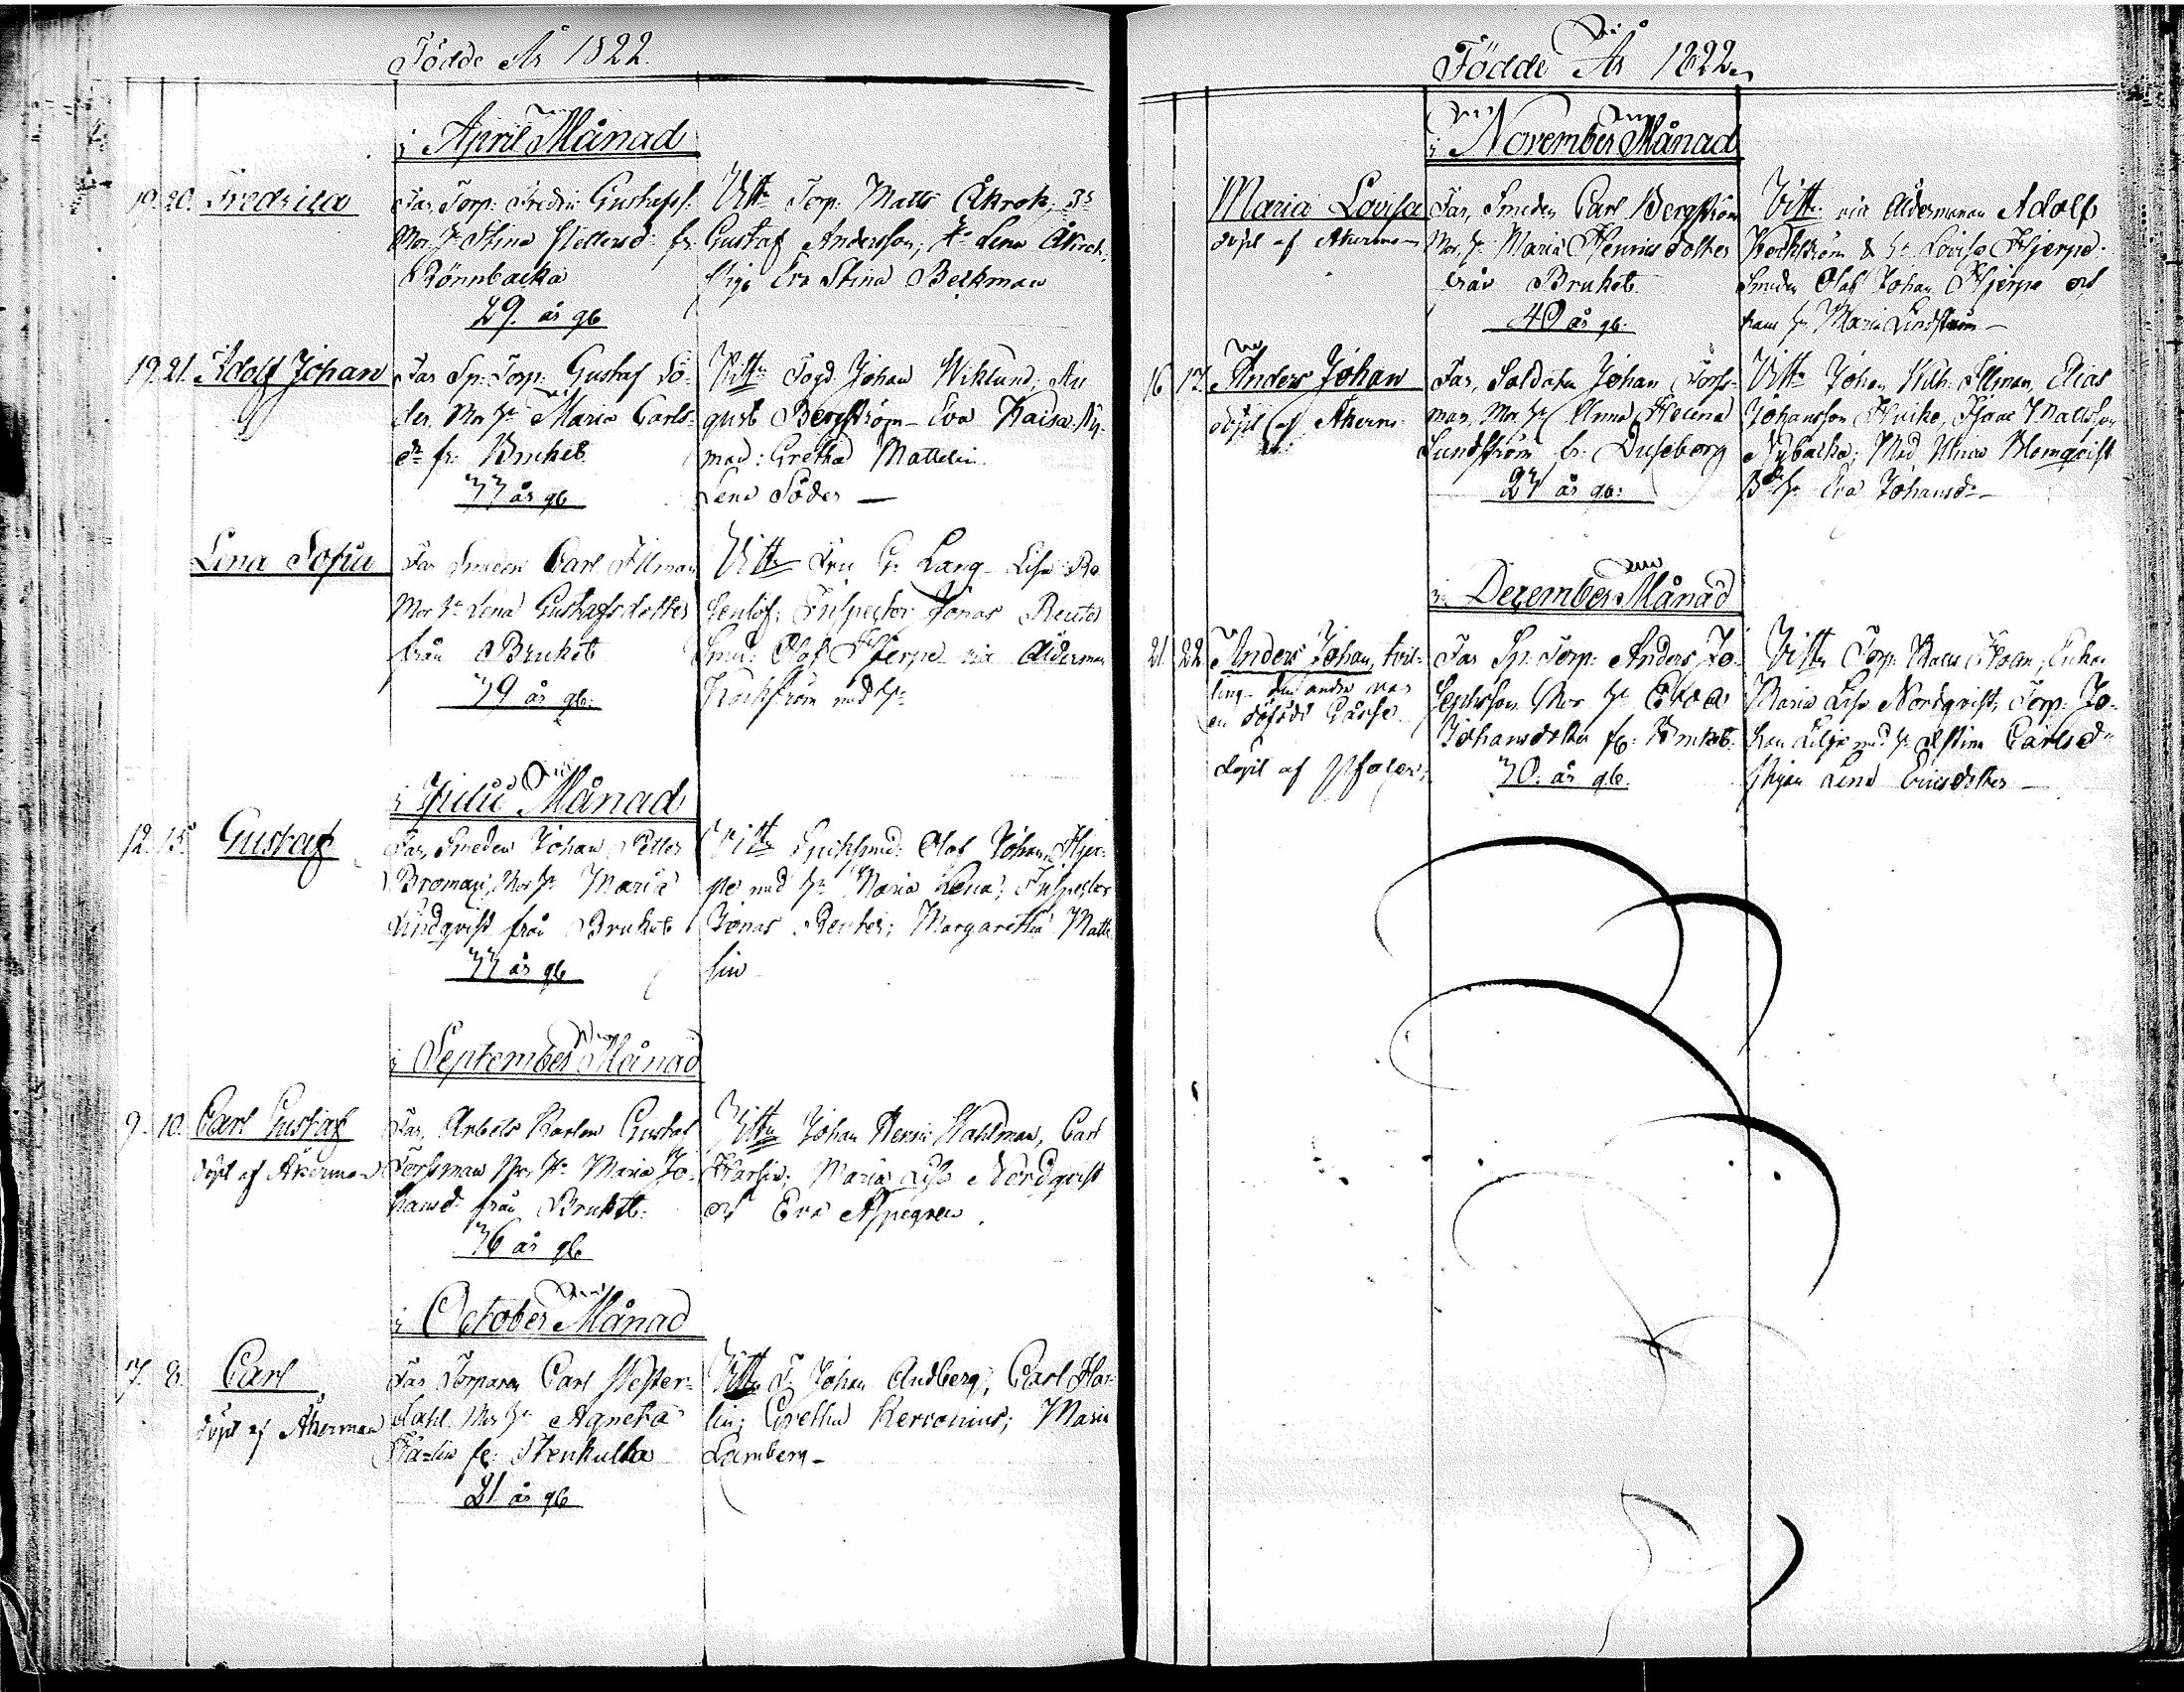 Födde År 1822.
i April Månad
19. 20. Fredrica
Far, Torp: Gustafss:
Mor h: Stina fr:
Rönnbacka
29. år gl:
Vittn Torp: Matts Åkrok;
Gustaf Andersson; Lena Åkrok;
Pig: Eva Stina Beckman
19. 21. Adolf Johan
Far Sp: Torp: Gustaf Sö-
der. Mor h: Maria Carls-
dr fr: Bruket
33 år gl:
Vittn Fogd. Johan Wiklund; Au
gust Bergström - Eva Kaisa
mad: Gretha Mattelin
Lena Söder —
Lena Sofia
Far Smeden Carl Illman
Mor h: Lena Gustafsdotter
från Bruket
39 år gl:
Vittn Fru Lang - Lisa
Inspector Jonas Reuter
Smed: Olof Hjerpe Ålderman
Kockström med h:
i Julii Månad
12. 15. Gustaf
Far, Smeden Johan Petter
Broman, Mor h: Maria
Lindqvist från Bruket
33 år gl:
Vittn Olof Johan Hjer-
pe med h: Maria Lena; Inspector
Jonas Reuter; Margaretha Matte
lin
i September Månad
9. 10. Carl Gustaf
döpt af Åkerman
Far, Arbets Karlen Gustaf
Forssman Mor h: Maria Jo-
hansd: från Bruket:
36 år gl:
Vittn Johan Henric Wahlman, Carl
Harlin; Maria Lisa Nordqvist
och Eva Aspegren
i October Månad
7. 8. Carl
döpt af Åkerman
Far Torparen Carl Wester-
dahl. Mor h: Agneta
fr: Stenkulla
21 år gl:
Vittn Johan Andberg; Carl Har-
lin; Gretha Kerronius; Maria
Lamberg -
Födde År 1822.
i November Månad
Maria Lovisa
döpt af Åkerman
Far, Smeden Carl Bergström
Mor, h: Maria Henricsdotter
från Bruket
40 år gl:
Vittn Åldermannen Adolf
Kockström & h: Lovisa Hjerpe.
Smeden Olof Johan Hjerpe och
hans h: Maria Lindström —
16 17. Anders Johan
döpt af Åkerm:
Far, Soldaten Johan Forss-
man, Mor h: Anna Helena
Sundström fr: Duseborg
27 år gl:
Vittn Johan Wilh: Illman, Elias
Johansson Isaac Mattsson
Nybacka; Mad Blomqvist
h: Eva Johansdr —
i December Månad
21. 22. Anders Johan, tvil-
ling - den andra var
en dödfödd Gåsse
döpt af
Far Sp: Torp: Anders Jo-
sephsson Mor h: Eva
Johansdotter fr: Bruket.
30. år gl:
Vittn Torp:
Maria Lisa Nordqvist; Torp: Jo-
han Lilja med h: Stina Carlsdr
Pigan Lena Ericsdotter —